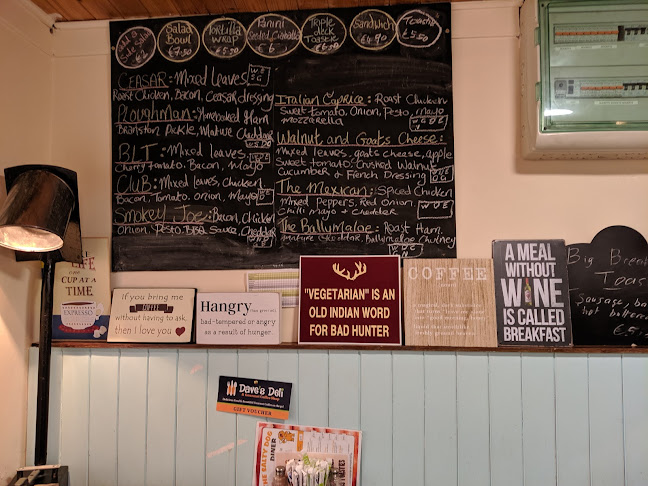 Salad
Bowl
€7.50
Tortilla
Wrap
€6.50
Panini
Toasted Ciabatta
€6
Triple
deck
Toastie
€6.50
Sandwich
€4.90
Toastie
€5.50
Ceasar: Mixed leaves
Roast Chicken, Bacon, Ceasar dressing
Ploughman: Homecooked Ham
Branston Pickle, Mature Cheddar
BLT: Mixed leaves
Cherry tomato, Bacon, Mayo
Club: Mixed leaves, Chicken
Bacon, Tomato, Onion, Mayo
Smokey Joe: Bacon, Chicken
Onion, Pesto, BBQ Sauce, Cheddar
Italian Caprice: Roast Chicken
Sweet tomato, Onion, Pesto, Mayo
Mozzarella
Walnut and Goats Cheese:
Mixed leaves, goats cheese, apple
Sweet tomato, Crushed Walnut
Cucumber & French Dressing
The Mexican: Spiced Chicken
Mixed Peppers, Red Onion,
Chilli Mayo & Cheddar
The Ballymaloe: Roast Ham,
Mature Cheddar, Ballymaloe Chutney
CUP AT A
TIME
ESPRESSO
If you bring me
COFFEE
without having to ask,
then I love you
Hangry
bad-tempered or angry
as a result of hunger
"VEGETARIAN" IS AN
OLD INDIAN WORD
FOR BAD HUNTER
COFFEE
A MEAL
WITHOUT
WINE
IS CALLED
BREAKFAST
Big Brea
Toas
Sausage, ba
hot buttere
Dave's Deli
GIFT VOUCHER
SALTY DOG
DINER